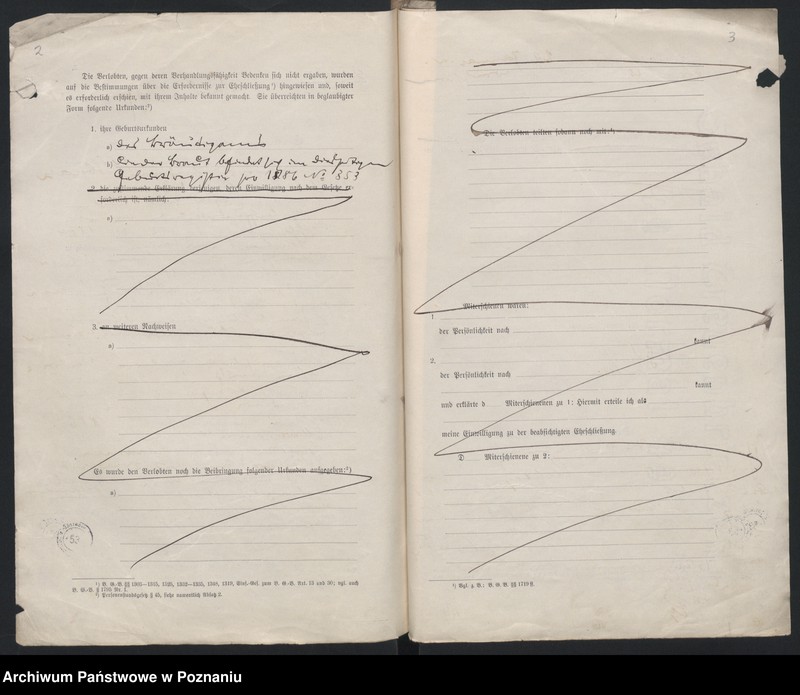 2
Die Verlobten, gegen deren Verhandlungsfähigkeit Bedenken sich nicht ergaben, wurden
auf die Bestimmungen über die Erfordernisse zur Eheschließung¹) hingewiesen und, soweit
es erforderlich erschien, mit ihrem Inhalte bekannt gemacht. Sie überreichten in beglaubigter
Form folgende Urkunden:²)
1. ihre Geburtsurkunden
a) des Bräutigams
b) der Braut befindet sich im diesseitigen
Geburtsregister pro 1886 No 353
2. die zustimmende Erklärung derjenigen, deren Einwilligung nach dem Gesetze er-
forderlich ist, nämlich:
c)
3. an weiteren Nachweisen
a)
Es wurde den Verlobten noch die Beibringung folgender Urkunden aufgegeben:²)
a)
53
¹) B. G.-B. §§ 1303—1315, Einf.-Ges. zum B. G.-B. Art. 13 und 30; vgl. auch
B. G.-B. §
²) Personenstandsgesetz § 45, siehe namentlich Absatz 3.
3
Die Verlobten teilten sodann noch mit:¹)
Miterschienen waren:
1.
der Persönlichkeit nach
kannt
2.
der Persönlichkeit nach
kannt
und erklärte d Miterschienenen zu 1: Hiermit erteile ich als
meine Einwilligung zu der beabsichtigten Eheschließung.
D Miterschienene zu 2:
¹) Vgl. z. B.: B. G. B. §§ 1719 ff.
Archiwum Państwowe w Poznaniu